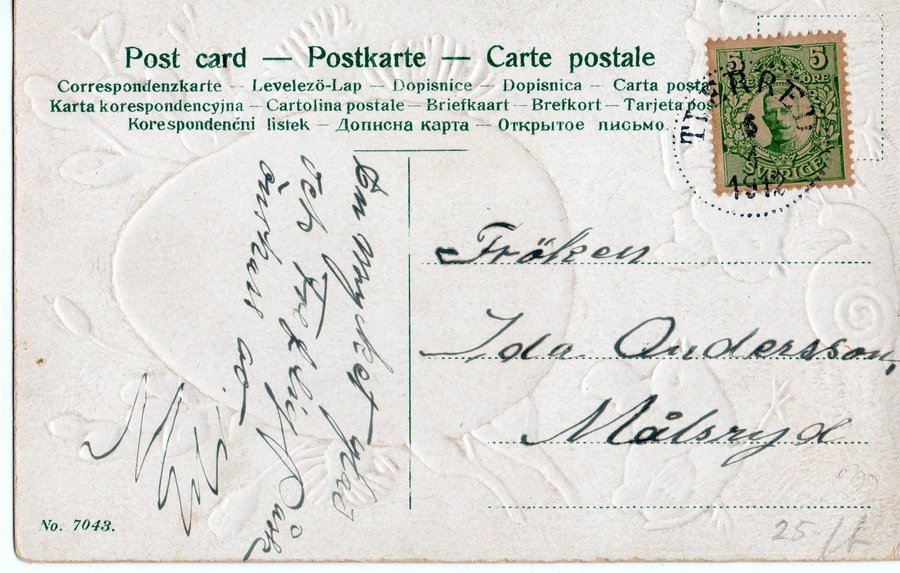 Post card — Postkarte — Carte postale
Correspondenzkarte — Levelező-Lap — Dopisnice — Dopisnica — Carta posta
Karta korespondencyjna — Cartolina postale — Briefkaart — Brefkort — Tarjeta pos
Korespondenční lístek — Дописна карта — Открытое письмо
5 5
ÖRE
SVERIGE
6
1912
En Mycket glad
och Treflig Påsk
önskas av
Fröken
Ida Andersson,
Målsryd
No. 7043.
25-